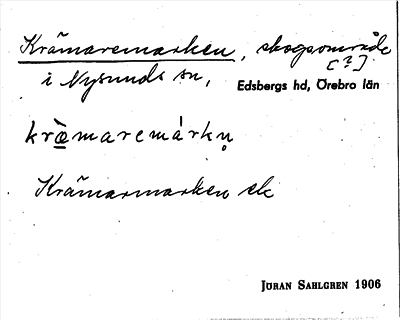 Krämaremarken, skogsområde
[?]
i Nysunds sn, Edsbergs hd, Örebro län
kræ̀maremárkn̥
Krämarmarken ek
JÖRAN SAHLGREN 1906